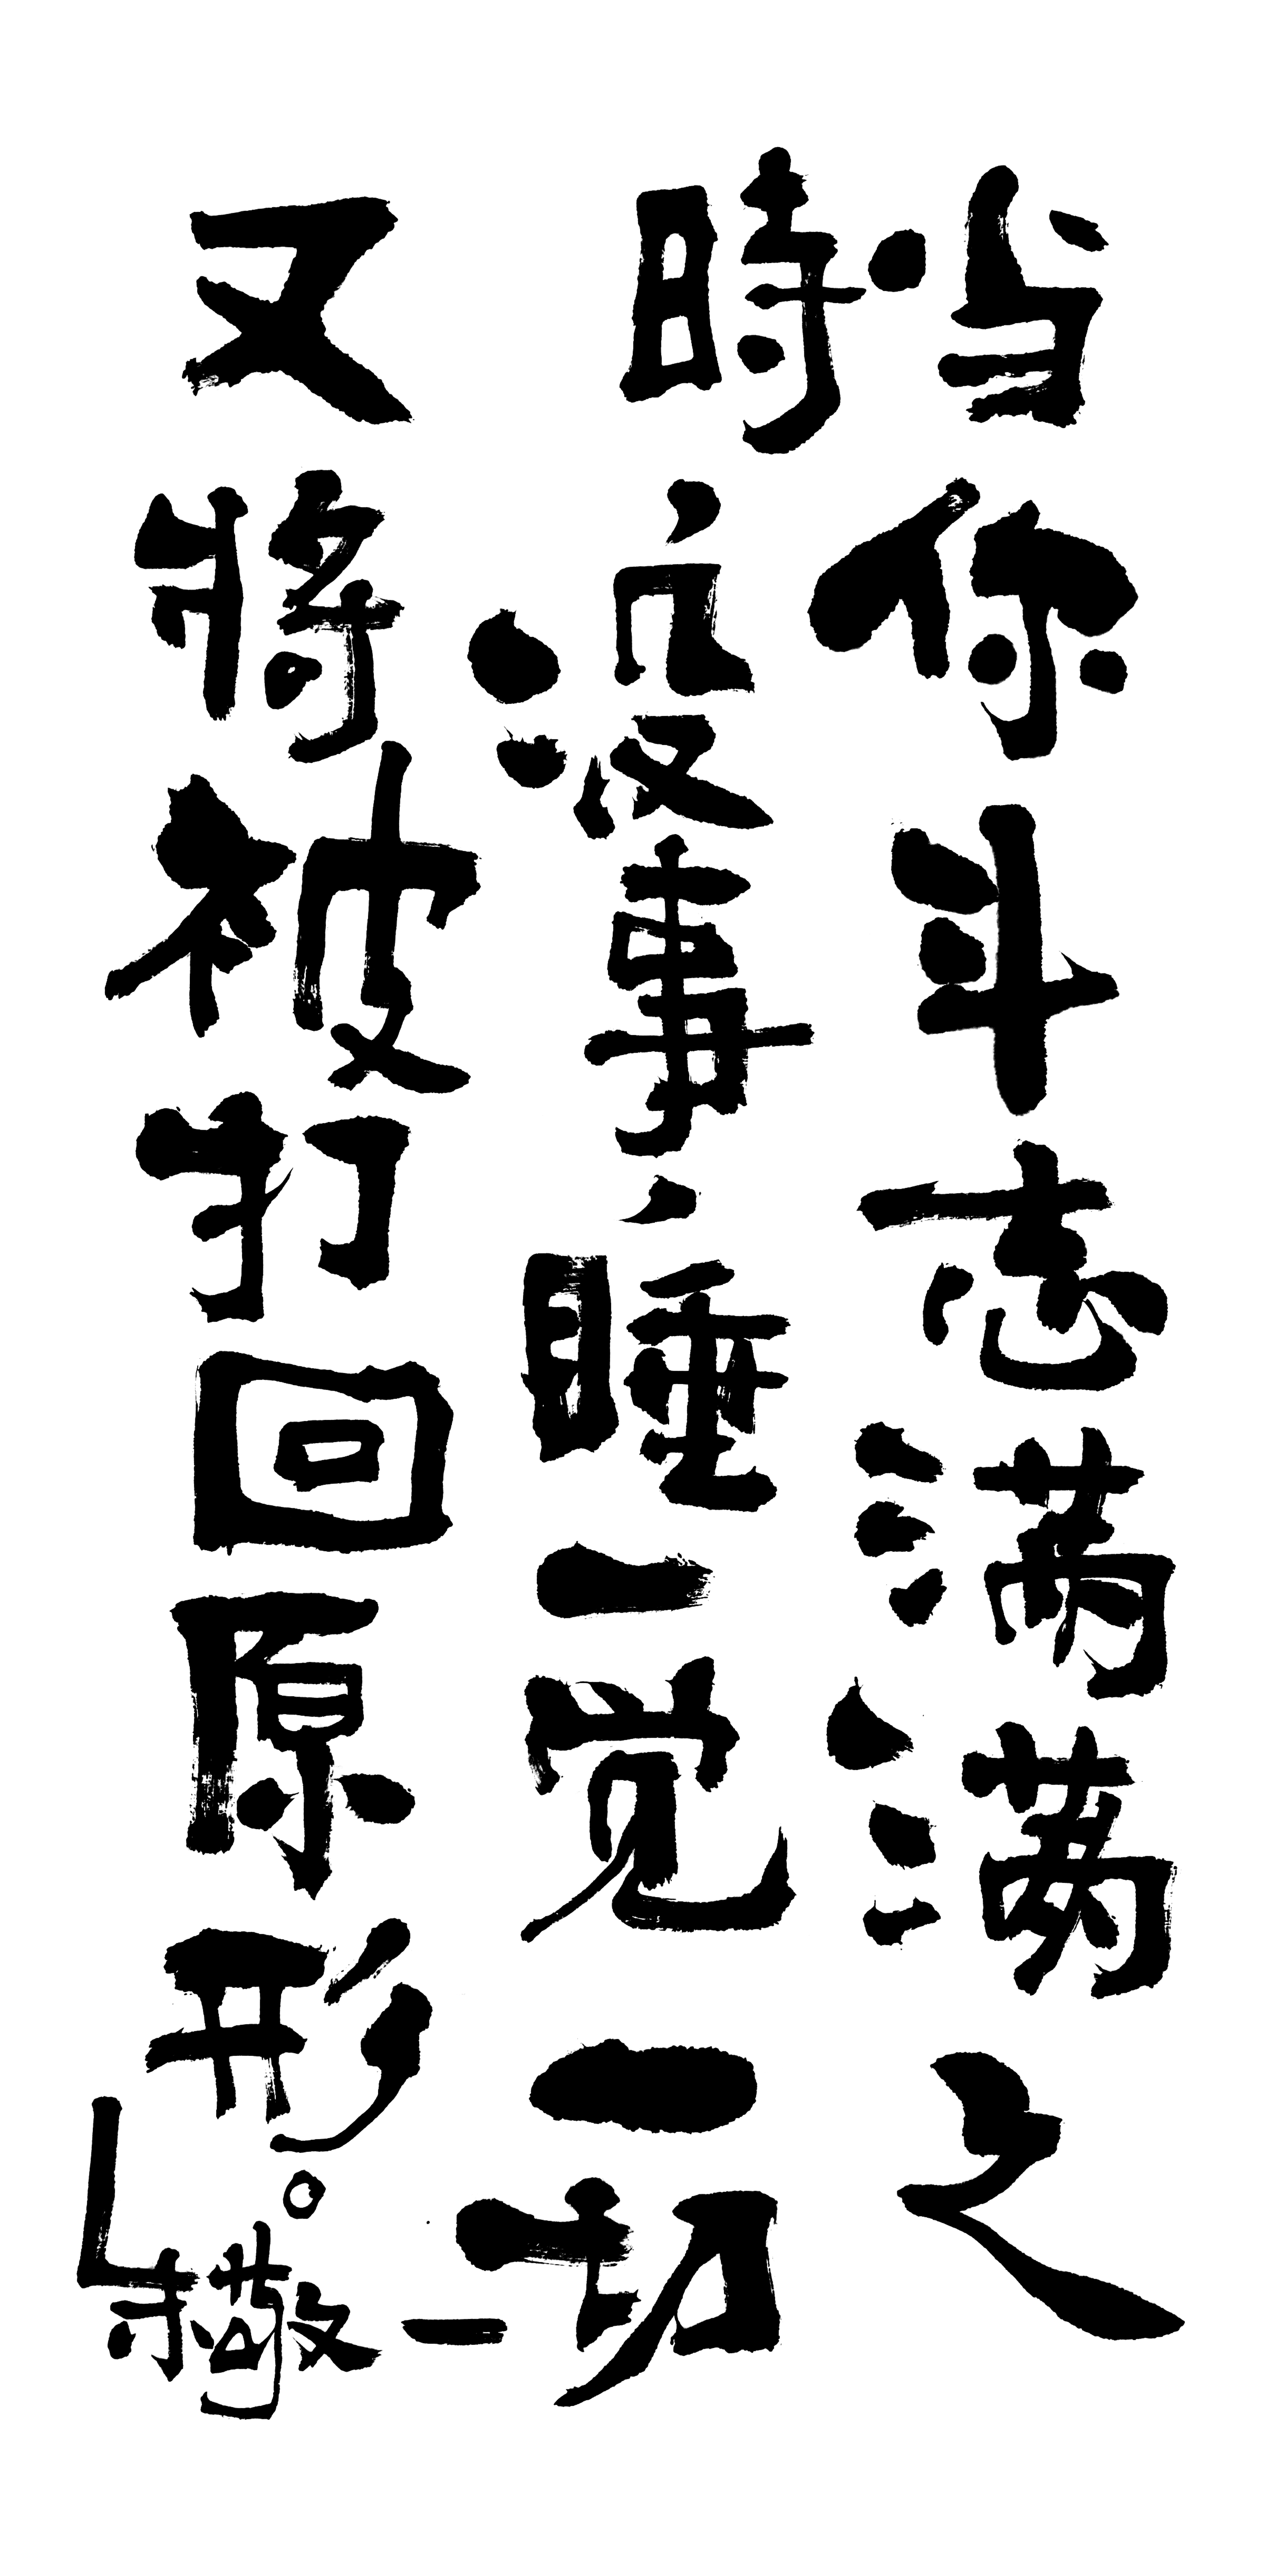 当你斗志满满之
時、没事、睡一觉一切
又將被打回原形。